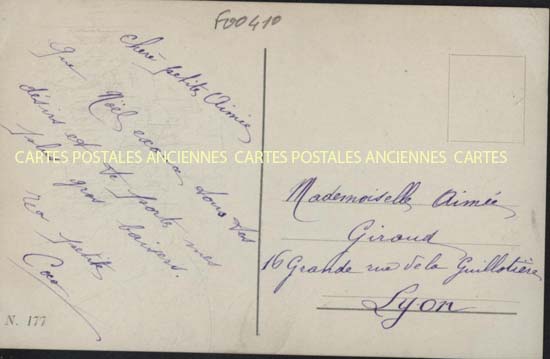 F00410
Chère petite Aimée
Que Noël exauce tous tes
désirs et te porte mes
plus gros baisers.
petite
Coco
CARTES POSTALES ANCIENNES CARTES POSTALES ANCIENNES CARTES
Mademoiselle Aimée
Giraud
16 Grande rue de la Guillotière
Lyon
N. 177